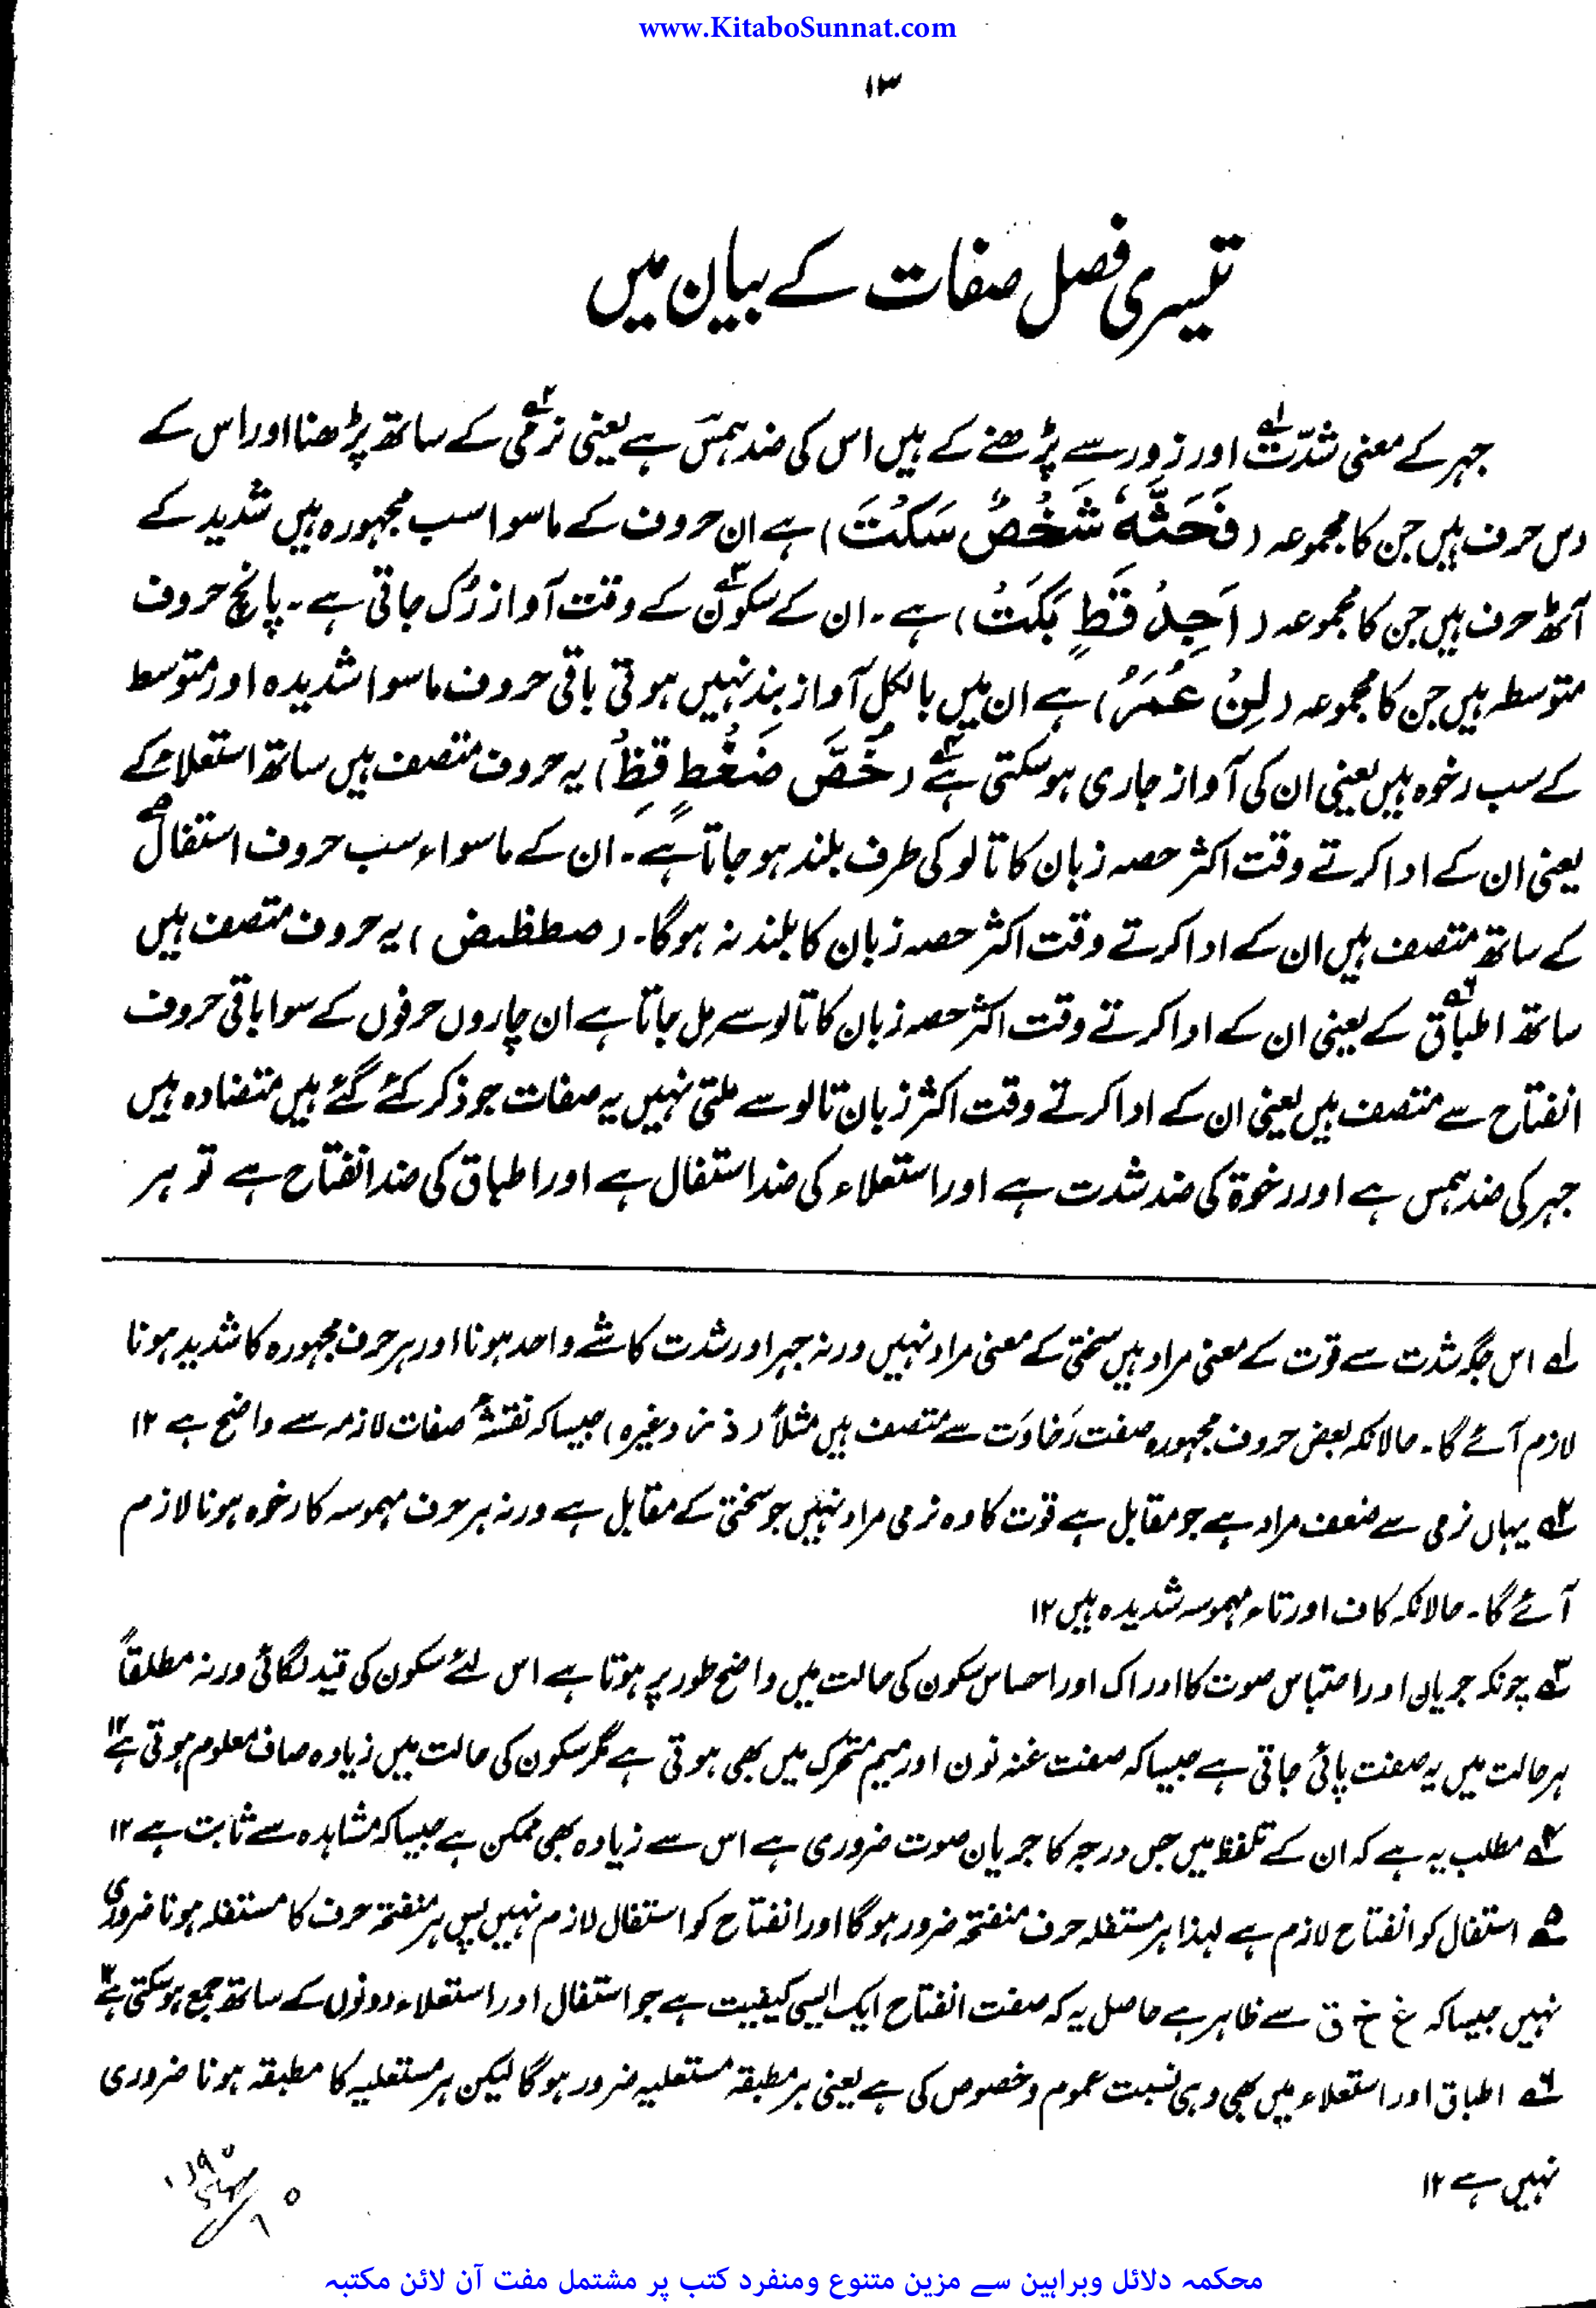 www.KitaboSunnat.com
۱۳
تیسری فصل صفات کے بیان میں
جہر کے معنی شدّت۱ے اور زور سے پڑھنے کے ہیں اس کی ضد ہمس ہے یعنی نرمی۲ے کے ساتھ پڑھنا اور اس کے
دس حرف ہیں جن کا مجموعہ (فَحَثَّهٗ شَخْصٌ سَکَتَ) ہے ان حروف کے ماسوا سب مجہورہ ہیں شدید کے
آٹھ حرف ہیں جن کا مجموعہ (اَجِدُ قَطٍ بَکَتُ) ہے۔ ان کے سکون۳ے کے وقت آواز رُک جاتی ہے۔ پانچ حروف
متوسطہ ہیں جن کا مجموعہ (لِنُ عُمَرُ) ہے ان میں بالکل آواز بند نہیں ہوتی باقی حروف ماسوا شدیدہ اور متوسط
کے سب رخوہ ہیں یعنی ان کی آواز جاری ہو سکتی ہے۴ے (خُصَّ ضَغْطٍ قِظُ) یہ حروف متصف ہیں ساتھ استعلاء کے
یعنی ان کے ادا کرتے وقت اکثر حصہ زبان کا تالو کی طرف بلند ہو جاتا ہے۔ ان کے ماسواء سب حروف استفال۵ے
کے ساتھ متصف ہیں ان کے ادا کرتے وقت اکثر حصہ زبان کا بلند نہ ہوگا۔ (صطظض) یہ حروف متصف ہیں
ساتھ اطباق۶ے کے یعنی ان کے ادا کرتے وقت اکثر حصہ زبان کا تالو سے مل جاتا ہے ان چاروں حرفوں کے سوا باقی حروف
انفتاح سے متصف ہیں یعنی ان کے ادا کرتے وقت اکثر زبان تالو سے ملتی نہیں یہ صفات جو ذکر کئے گئے ہیں متضادہ ہیں
جہر کی ضد ہمس ہے اور رخوۃ کی ضد شدت ہے اور استعلاء کی ضد استفال ہے اور اطباق کی ضد انفتاح ہے تو ہر
۱ے اس جگہ شدت سے قوت کے معنی مراد ہیں سختی کے معنی مراد نہیں ورنہ جہر اور شدت کا شے واحد ہونا اور ہر حرف مجہورہ کا شدید ہونا
لازم آئے گا۔ حالانکہ بعض حروف مجہورہ صفت رَخاوَت سے متصف ہیں مثلاً (ذ ز وغیرہ) جیسا کہ نقشۂ صفات لازمہ سے واضح ہے ۱۲
۲ے یہاں نرمی سے ضعف مراد ہے جو مقابل ہے قوت کا وہ نرمی مراد نہیں جو سختی کے مقابل ہے ورنہ ہر حرف مہموسہ کا رخوہ ہونا لازم
آئے گا۔ حالانکہ کاف اور تاء مہموسہ شدیدہ ہیں ۱۲
۳ے چونکہ جریان اور احتباس صوت کا ادراک اور احساس سکون کی حالت میں واضح طور پر ہوتا ہے اس لئے سکون کی قید لگائی ورنہ مطلقاً
ہر حالت میں یہ صفت پائی جاتی ہے جیسا کہ صفت غنہ نون اور میم متحرک میں بھی ہوتی ہے مگر سکون کی حالت میں زیادہ صاف معلوم ہوتی ہے ۱۲
۴ے مطلب یہ ہے کہ ان کے تلفظ میں جس درجہ کا جریان صوت ضروری ہے اس سے زیادہ بھی ممکن ہے جیسا کہ مشاہدہ سے ثابت ہے ۱۲
۵ے استفال کو انفتاح لازم ہے لہذا ہر مستفلہ حرف منفتحہ ضرور ہوگا اور انفتاح کو استفال لازم نہیں پس ہر منفتحہ حرف کا مستفلہ ہونا ضروری
نہیں جیسا کہ غ خ ق سے ظاہر ہے حاصل یہ کہ صفت انفتاح ایک ایسی کیفیت ہے جو استفال اور استعلاء دونوں کے ساتھ جمع ہو سکتی ہے ۱۲
۶ے اطباق اور استعلاء میں بھی وہی نسبت عموم وخصوص کی ہے یعنی ہر مطبقہ مستعلیہ ضرور ہوگا لیکن ہر مستعلیہ کا مطبقہ ہونا ضروری
نہیں ہے ۱۲
محکمہ دلائل وبراہین سے مزین متنوع ومنفرد کتب پر مشتمل مفت آن لائن مکتبہ